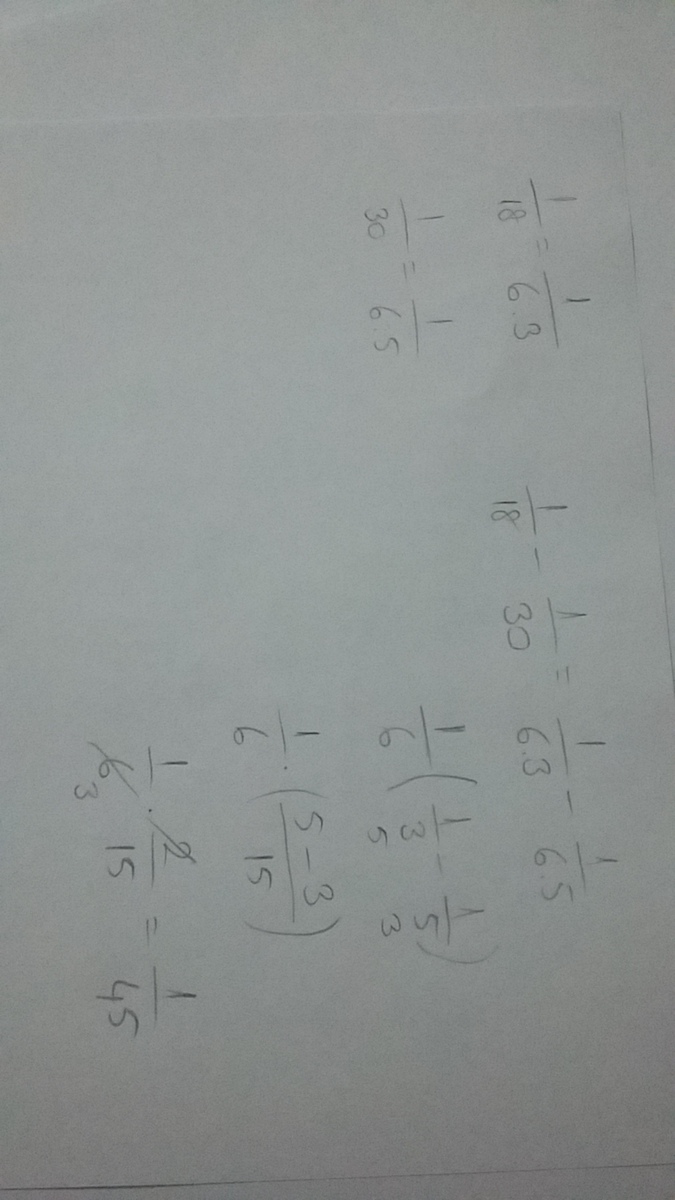 1/18 = 1/6.3
1/30 = 1/6.5
1/18 - 1/30 = 1/6.3 - 1/6.5
1/6 (1/3 - 1/5)
5 3
1/6 . (5-3/15)
1/6 . 2/15 = 1/45
3